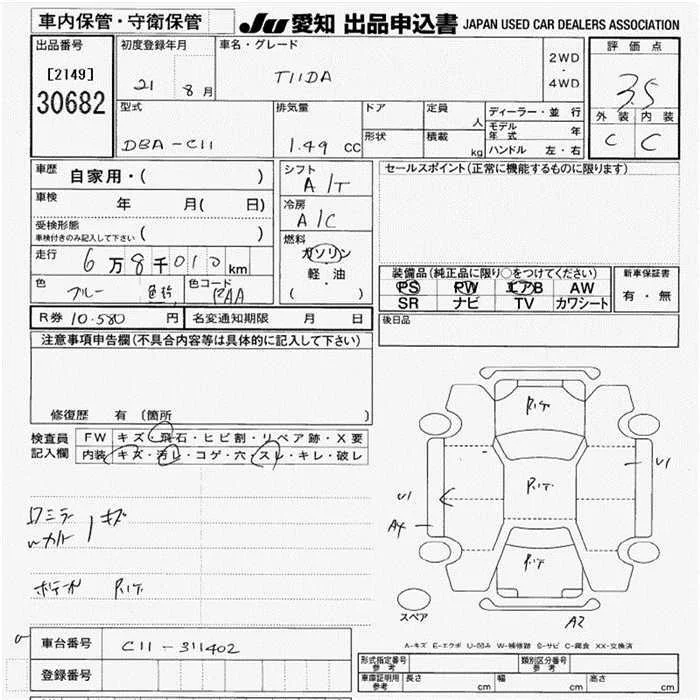 車内保管・守衛保管 JU 愛知 出品申込書 JAPAN USED CAR DEALERS ASSOCIATION
出品番号 初度登録年月 車名・グレード 2WD ・ 4WD 評価点
[2149] 30682 21 8月 TIIDA 3.5
型式 排気量 ドア 定員 人 ディーラー・並行 外装 内装
DBA-C11 1.49 CC 形状 積載 kg モデル年式 年 C C
ハンドル 左・右
車歴 自家用・( ) シフト A/T セールスポイント(正常に機能するものに限ります)
車検 年 月( 日) 冷房 A/C
受検形態 車検付きのみ記入して下さい ( ) 燃料 ガソリン
走行 6万8千010km 軽・油 ( ) 装備品(純正品に限り○をつけてください) 新車保証書
色 ブルー 色コード RAA PS PW エアB AW 有・無
SR ナビ TV カワシート
R券 10.580 円 名変通知期限 月 日 後日品
注意事項申告欄(不具合内容等は具体的に記入して下さい)
修復歴 有 〔箇所 〕
検査員記入欄 FW キズ・飛石・ヒビ割・リペア跡・X要
内装 キズ・汚レ・コゲ・穴・スレ・キレ・破レ
キズ
R1ケ
R1ケ
R1ケ
U1
U1
A4
A2
スペア
R1ケ
A-キズ E-エクボ U-凹み W-補修跡 S-サビ C-腐食 XX-交換済
車台番号 C11-311402
登録番号
形式指定番号 参考 類別区分番号 参考
車庫証明用 参考 長さ cm 幅 cm 高さ cm